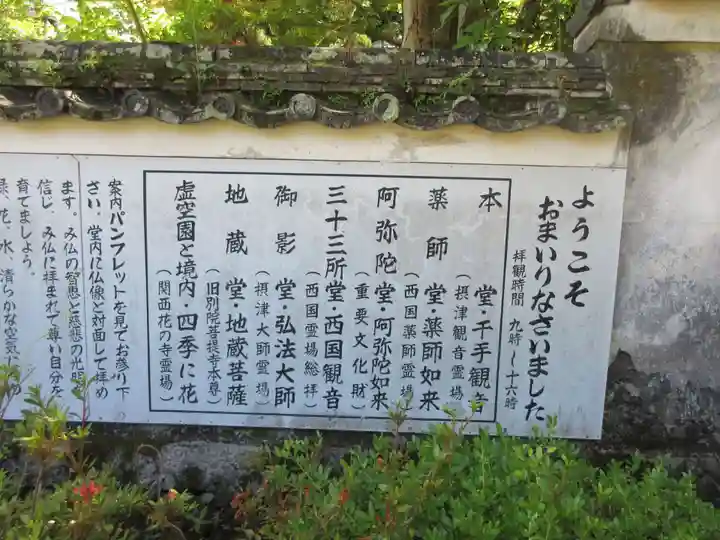 ようこそ
おまいりなさいました
拝観時間 九時〜十六時
本堂・千手観音
(摂津観音霊場)
薬師堂・薬師如来
(西国薬師霊場)
阿弥陀堂・阿弥陀如来
(重要文化財)
三十三所堂・西国観音
(西国霊場総拝)
御影堂・弘法大師
(摂津大師霊場)
地蔵堂・地蔵菩薩
(旧別院菩提寺本尊)
虚空園と境内・四季に花
(関西花の寺霊場)
案内パンフレットを見てお参り下
さい。堂内に仏像と対面して拝め
ます。み仏の智恵と慈悲の光明
信じ、み仏に拝まれて尊い自分を
育てましょう。
緑、花、水、清らかな空気